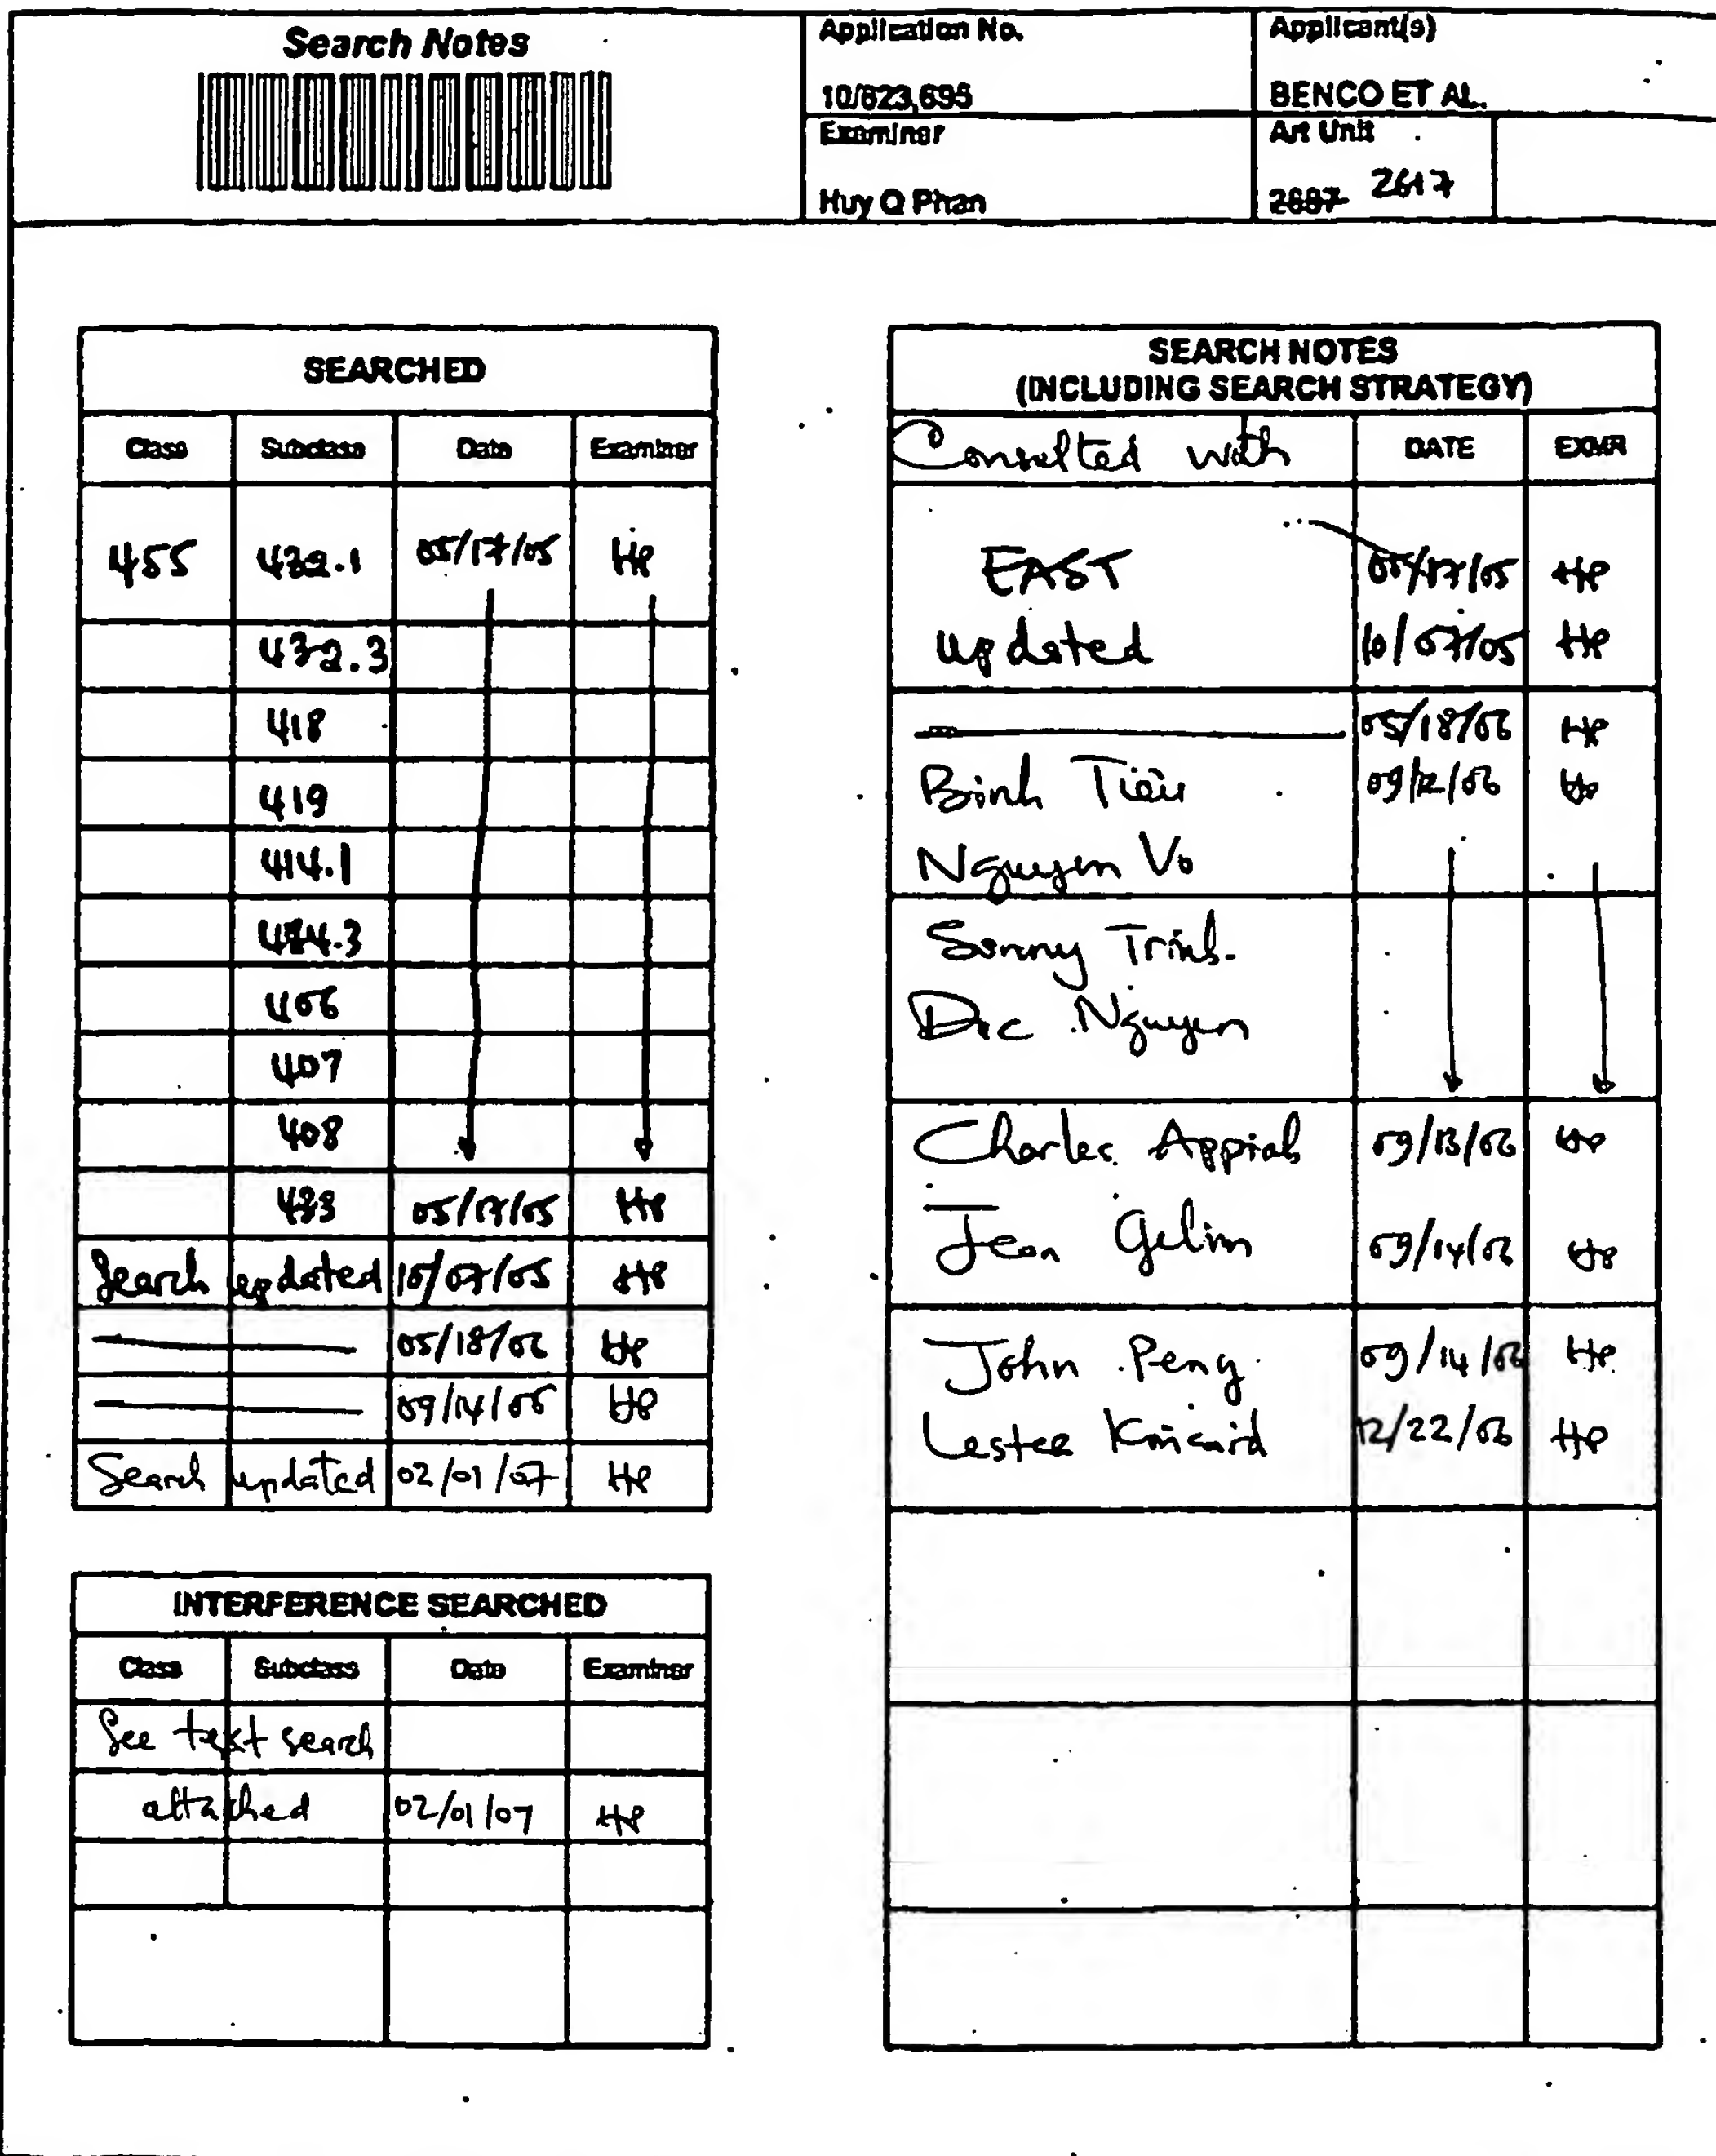 Search Notes
Application No.
10/823,695
Applicant(s)
BENCO ET AL.
Examiner
Huy Q Phan
Art Unit
2687 2617
SEARCHED
Class Subclass Date Examiner
455 432.1 05/17/05 HP
432.3
418
419
414.1
414.3
406
407
408
433 05/17/05 HP
Search updated 10/07/05 HP
05/18/06 HP
09/14/06 HP
Search updated 02/01/07 HP
INTERFERENCE SEARCHED
Class Subclass Date Examiner
See text search
attached 02/01/07 HP
SEARCH NOTES
(INCLUDING SEARCH STRATEGY)
Consulted with DATE EXMR
EAST 05/17/05 HP
updated 10/07/05 HP
05/18/06 HP
Binh Tieu 09/12/06 HP
Nguyen Vo
Sonny Trinh
Duc Nguyen
Charles Appiah 09/13/06 HP
Jean Gelin 09/14/06 HP
John Peng 09/14/06 HP
Lester Kincaid 12/22/06 HP